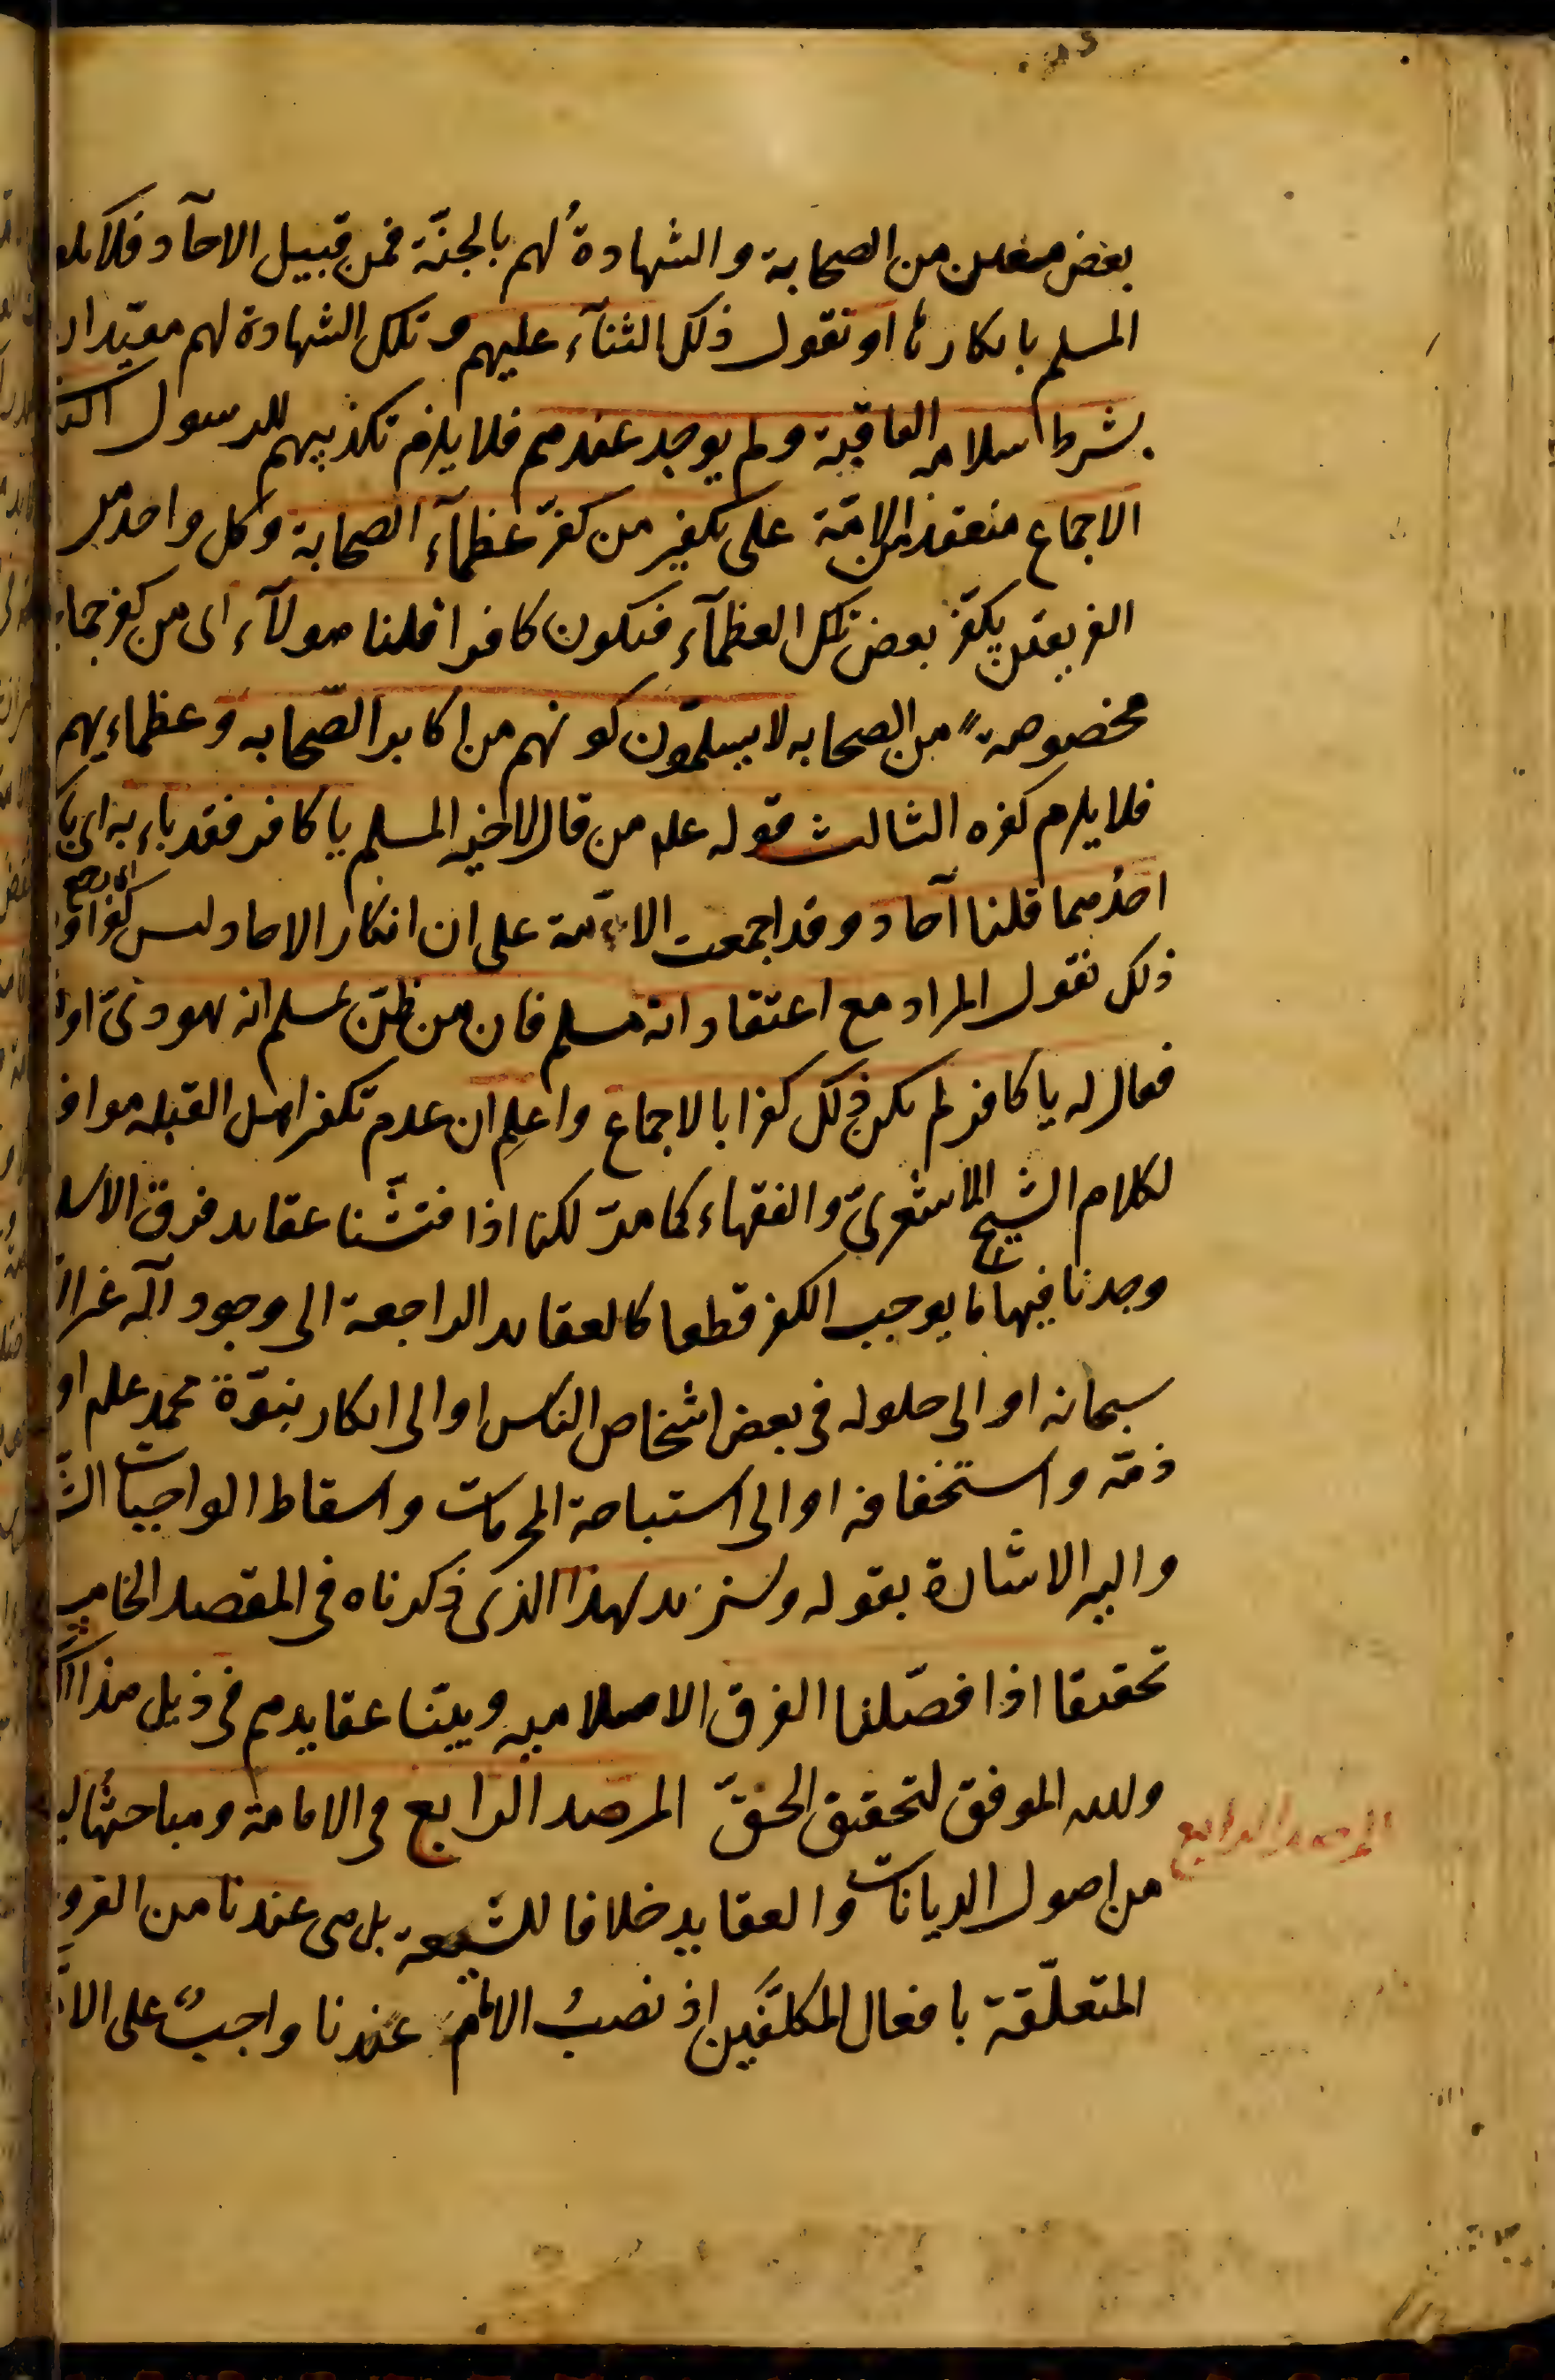 بعض معين من الصحابة والشهادةُ لهم بالجنّة فمن قبيل الاحآد فلا يكفر
المسلم بانكارها او نقول ذلك الثنآء عليهم وتلك الشهادة لهم مقيّدان
بشرط سلامة العاقبة ولم يوجد عندهم فلا يلزم تكذيبهم للرسول
الاجماع منعقد من الامّة على تكفير من كفّر عظمآء الصحابة وكل واحد من
الفريقين يكفّر بعض تلك العظمآء فيكون كافرا قلنا هولآء اى من كفر جماعة
مخصوصةً من الصحابه لا يسلّمون كونهم من اكابر الصّحابه وعظمائهم
فلا يلزم كفره الثالث قوله علم من قال لاخيه المسلم يا كافر فقد باء به اى بالكفر
احدُهما قلنا آحاد وقد اجمعت الامّة على ان انكار الاحاد ليس كفرا و
ذلك نقول المراد مع اعتقاد انه مسلم فان من ظنّ بمسلم انه يهودىّ او
فقال له يا كافر لم يكن ذلك كفرا بالاجماع واعلم ان عدم تكفير اهل القبله موافق
لكلام الشيخ الاشعرىّ والفقهاء كما مرّ لكنا اذا فتّشنا عقايد فرق الاسلا
وجدنا فيها ما يوجب الكفر قطعا كالعقايد الراجعة الى وجود اله غير الله
سبحانه او الى حلوله فى بعض اشخاص الناس او الى انكار نبوّة محمد علم او
ذمّه واستخفافه او الى استباحة المحرمات واسقاط الواجبات
واليه الاشارة بقوله وسنزيد لهذا الذى ذكرناه فى المقصد الخامس
تحقيقا اذا فصّلنا الفرق الاسلاميه وبيّنا عقايدهم فى ذيل هذا
والله الموفق لتحقيق الحقّ المرصد الرابع فى الامامة ومباحثها ليست
المرصد الرابع
من اصول الديانات والعقايد خلافا للشيعة بل هى عندنا من الفروع
المتعلّقة بافعال المكلّفين اذ نصبُ الامام عندنا واجبٌ على الامّة